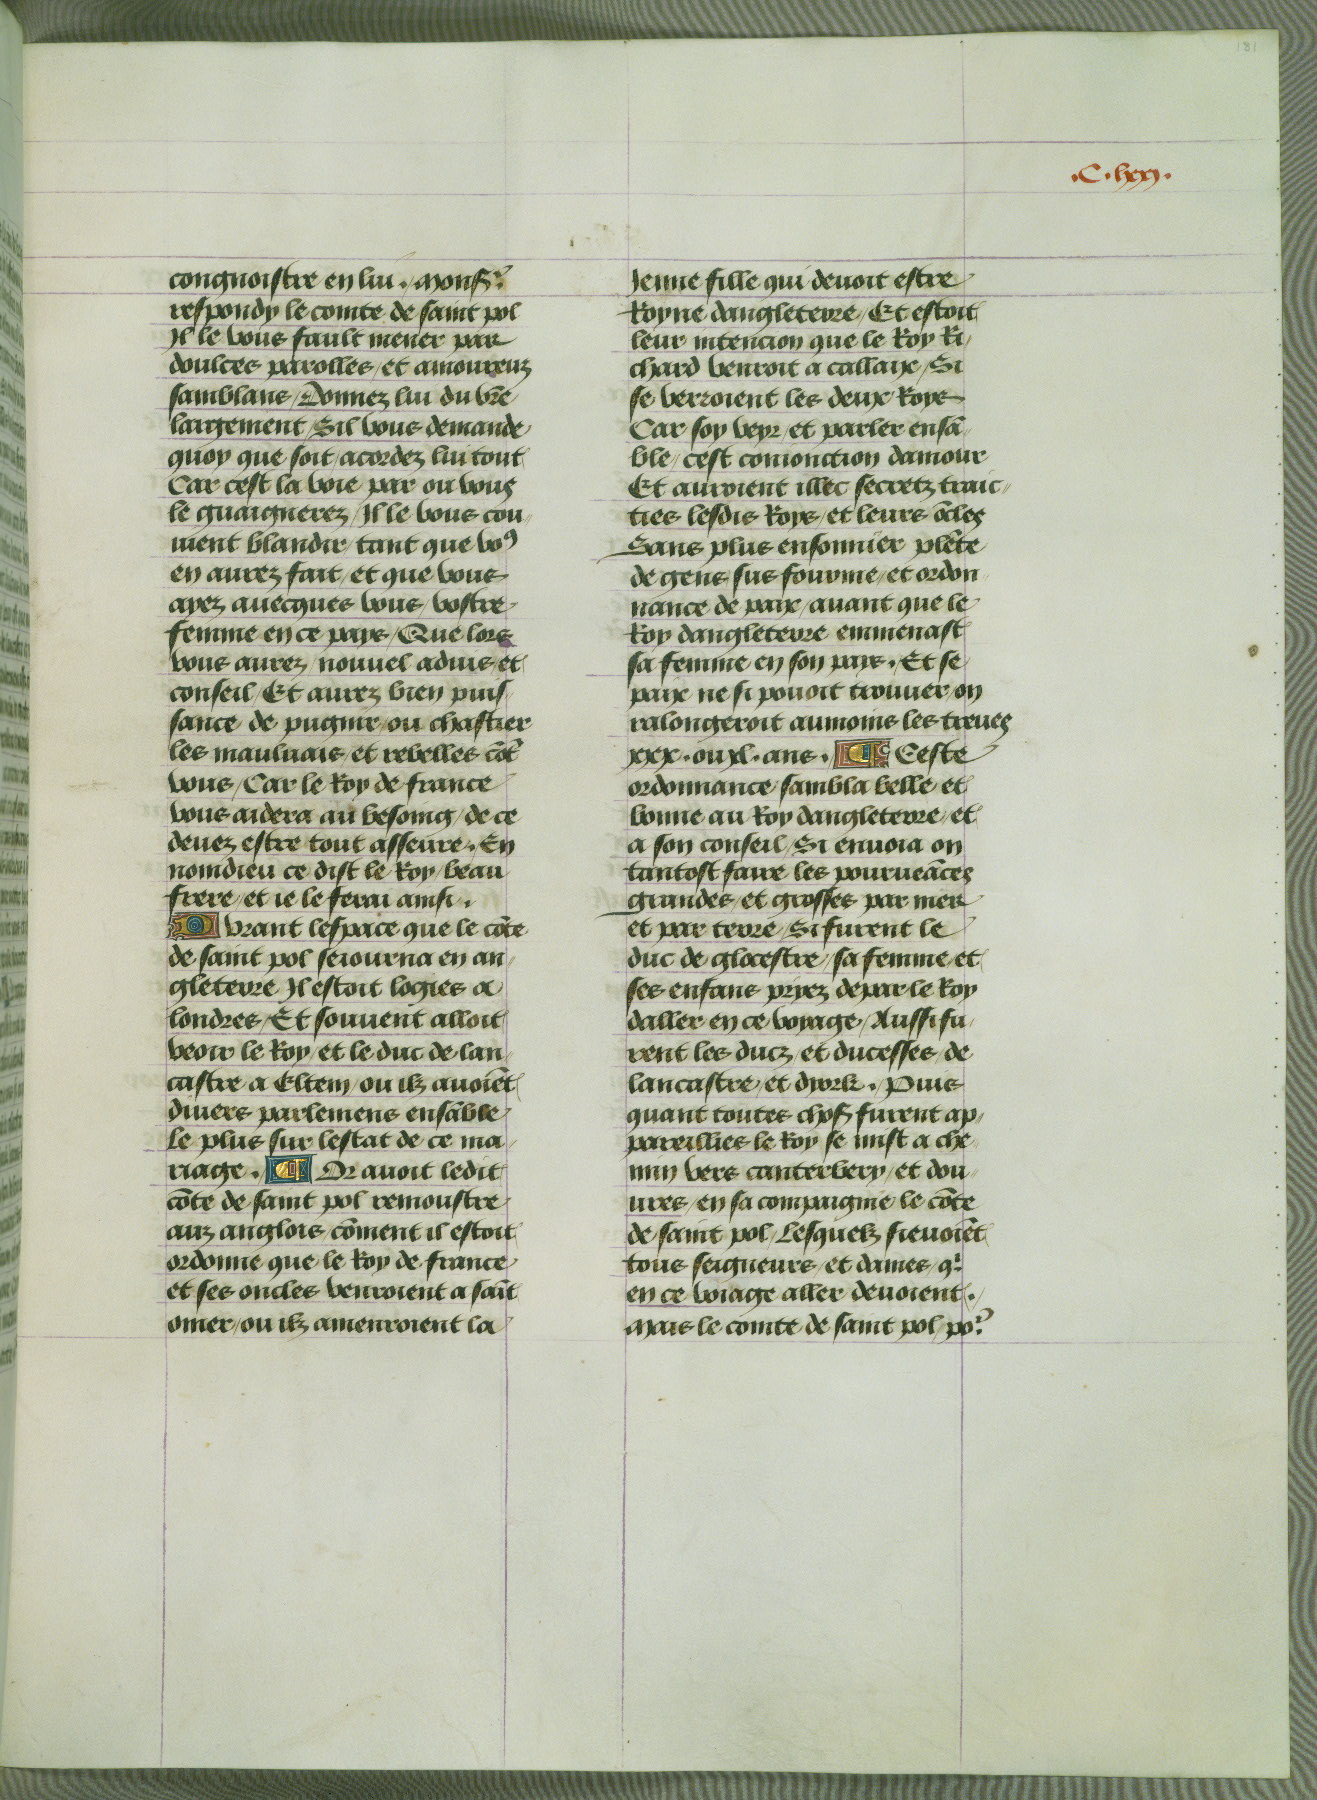 181
.C.lxxj.
congnoistre en lui . Monsr
respondy le comte de saint pol
Il le vous fault mener par
doulces parolles / et amoureuz
samblans / Donnez lui du vr̄e
largement / Sil vous demande
quoy que soit / acordez lui tout
Car cest la voie par ou vous
le guaignerez / Il le vous con-
uient blandir tant que voꝰ
en aurez fait / et que vous
ayez auecques vous vostre
femme en ce pays / Que lors
vous aurez nouuel aduis et
conseil / Et aurez bien puis-
sance de pugnir ou chastier
les mauluais et rebelles cōt̄
vous / Car le Roy de france
vous aidera au besoing / de ce
deuez estre tout asseure . En
nomdieu ce dist le Roy beau
frere / et ie le ferai ainsi .
Durant lespace que le cōte
de saint pol seiourna en an-
gleterre Il estoit logies a
londres / Et souuent alloit
veoir le Roy / et le duc de lan-
castre a Eltem / ou ilz auoiēt
diuers parlemens ensāble
Le plus sur lestat de ce ma-
riage . ¶ Or auoit ledit
cōte de saint pol remoustre
auz anglois cōment il estoit
ordonne que le Roy de france
et ses oncles venroient a sāit
omer / ou ilz amenroient la
Jenne fille qui deuoit estre
Royne dangleterre / Et estoit
leur intencion que le Roy Ri-
chard venroit a callaix / Si
se verroient les deux Roys
Car soy veyr / et parler ensā-
ble / cest conionction damour
Et auroient illec secretz traic-
ties lesdis Roys / et leurs ōcles
Sans plus ensonnier plēte
de gens sus fourme / et ordon-
nance de paix / auant que le
Roy dangleterre emmenast
sa femme en son pays . Et se
paix ne si pouoit trouuer / on
ralongeroit aumoins les treues
xxx . ou xl . ans . ¶ Ceste
ordonnance sambla belle et
bonne au Roy dangleterre / et
a son conseil / Si enuoia on
tantost faire les pourueāces
grandes / et grosses par mer
et par terre / Si furent le
duc de glocestre / sa femme et
ses enfans pryez depar le Roy
daller en ce voyage / Aussi fu-
rent les ducz et ducesses de
lancastre / et dyork . Puis
quant toutes chos̄ furent ap-
pareillies le Roy se mist a che-
min vers canterbery / et dou-
ures / en sa compaignie le cōte
de saint pol / Lesquelz sieuoiēt
tous seigneurs / et dames / qͥ
en ce voiage aller deuoient .
Mais le comte de saint pol por